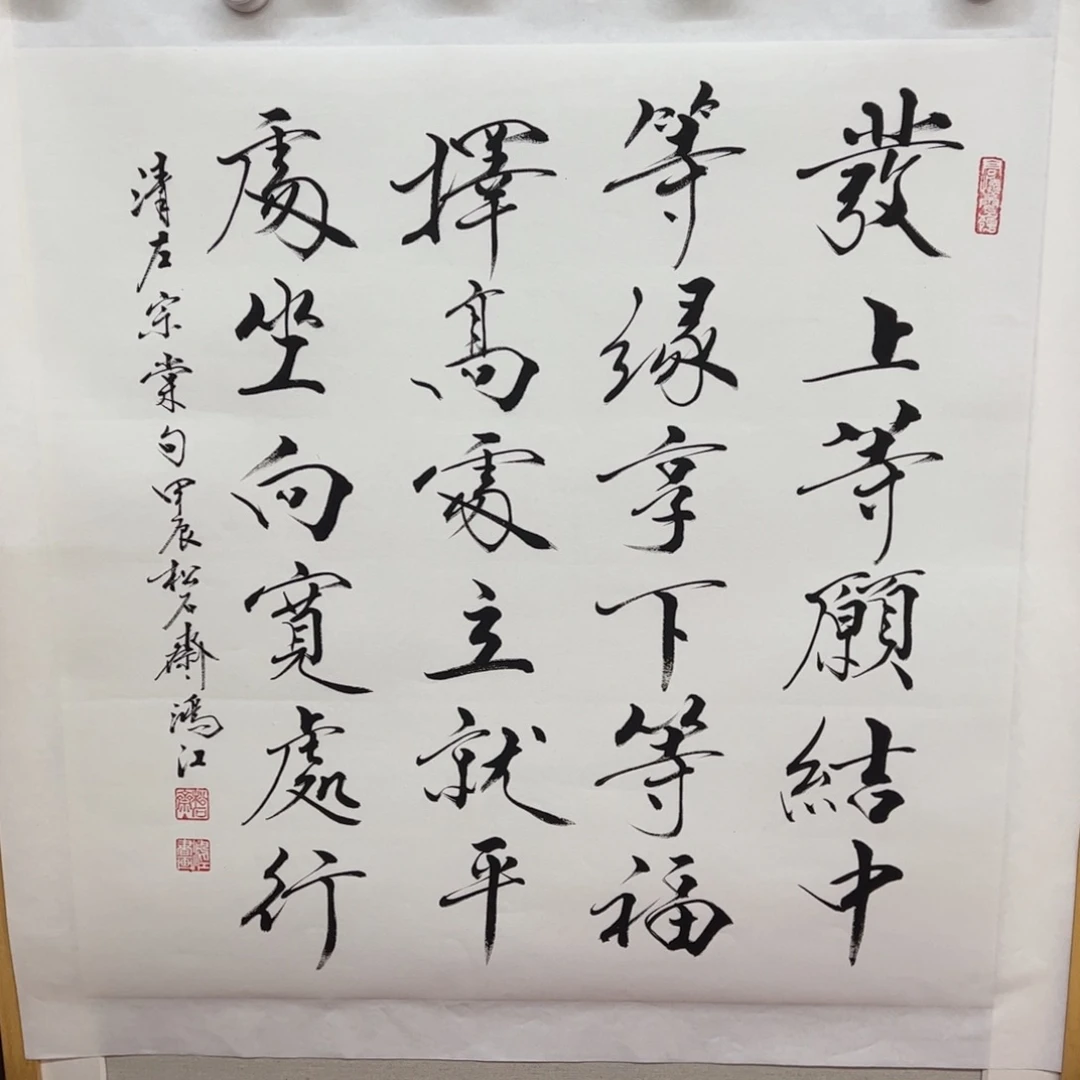 發上等願結中
等緣享下等福
擇高處立就平
處坐向寬處行
清左宗棠句甲辰松石齋鴻江